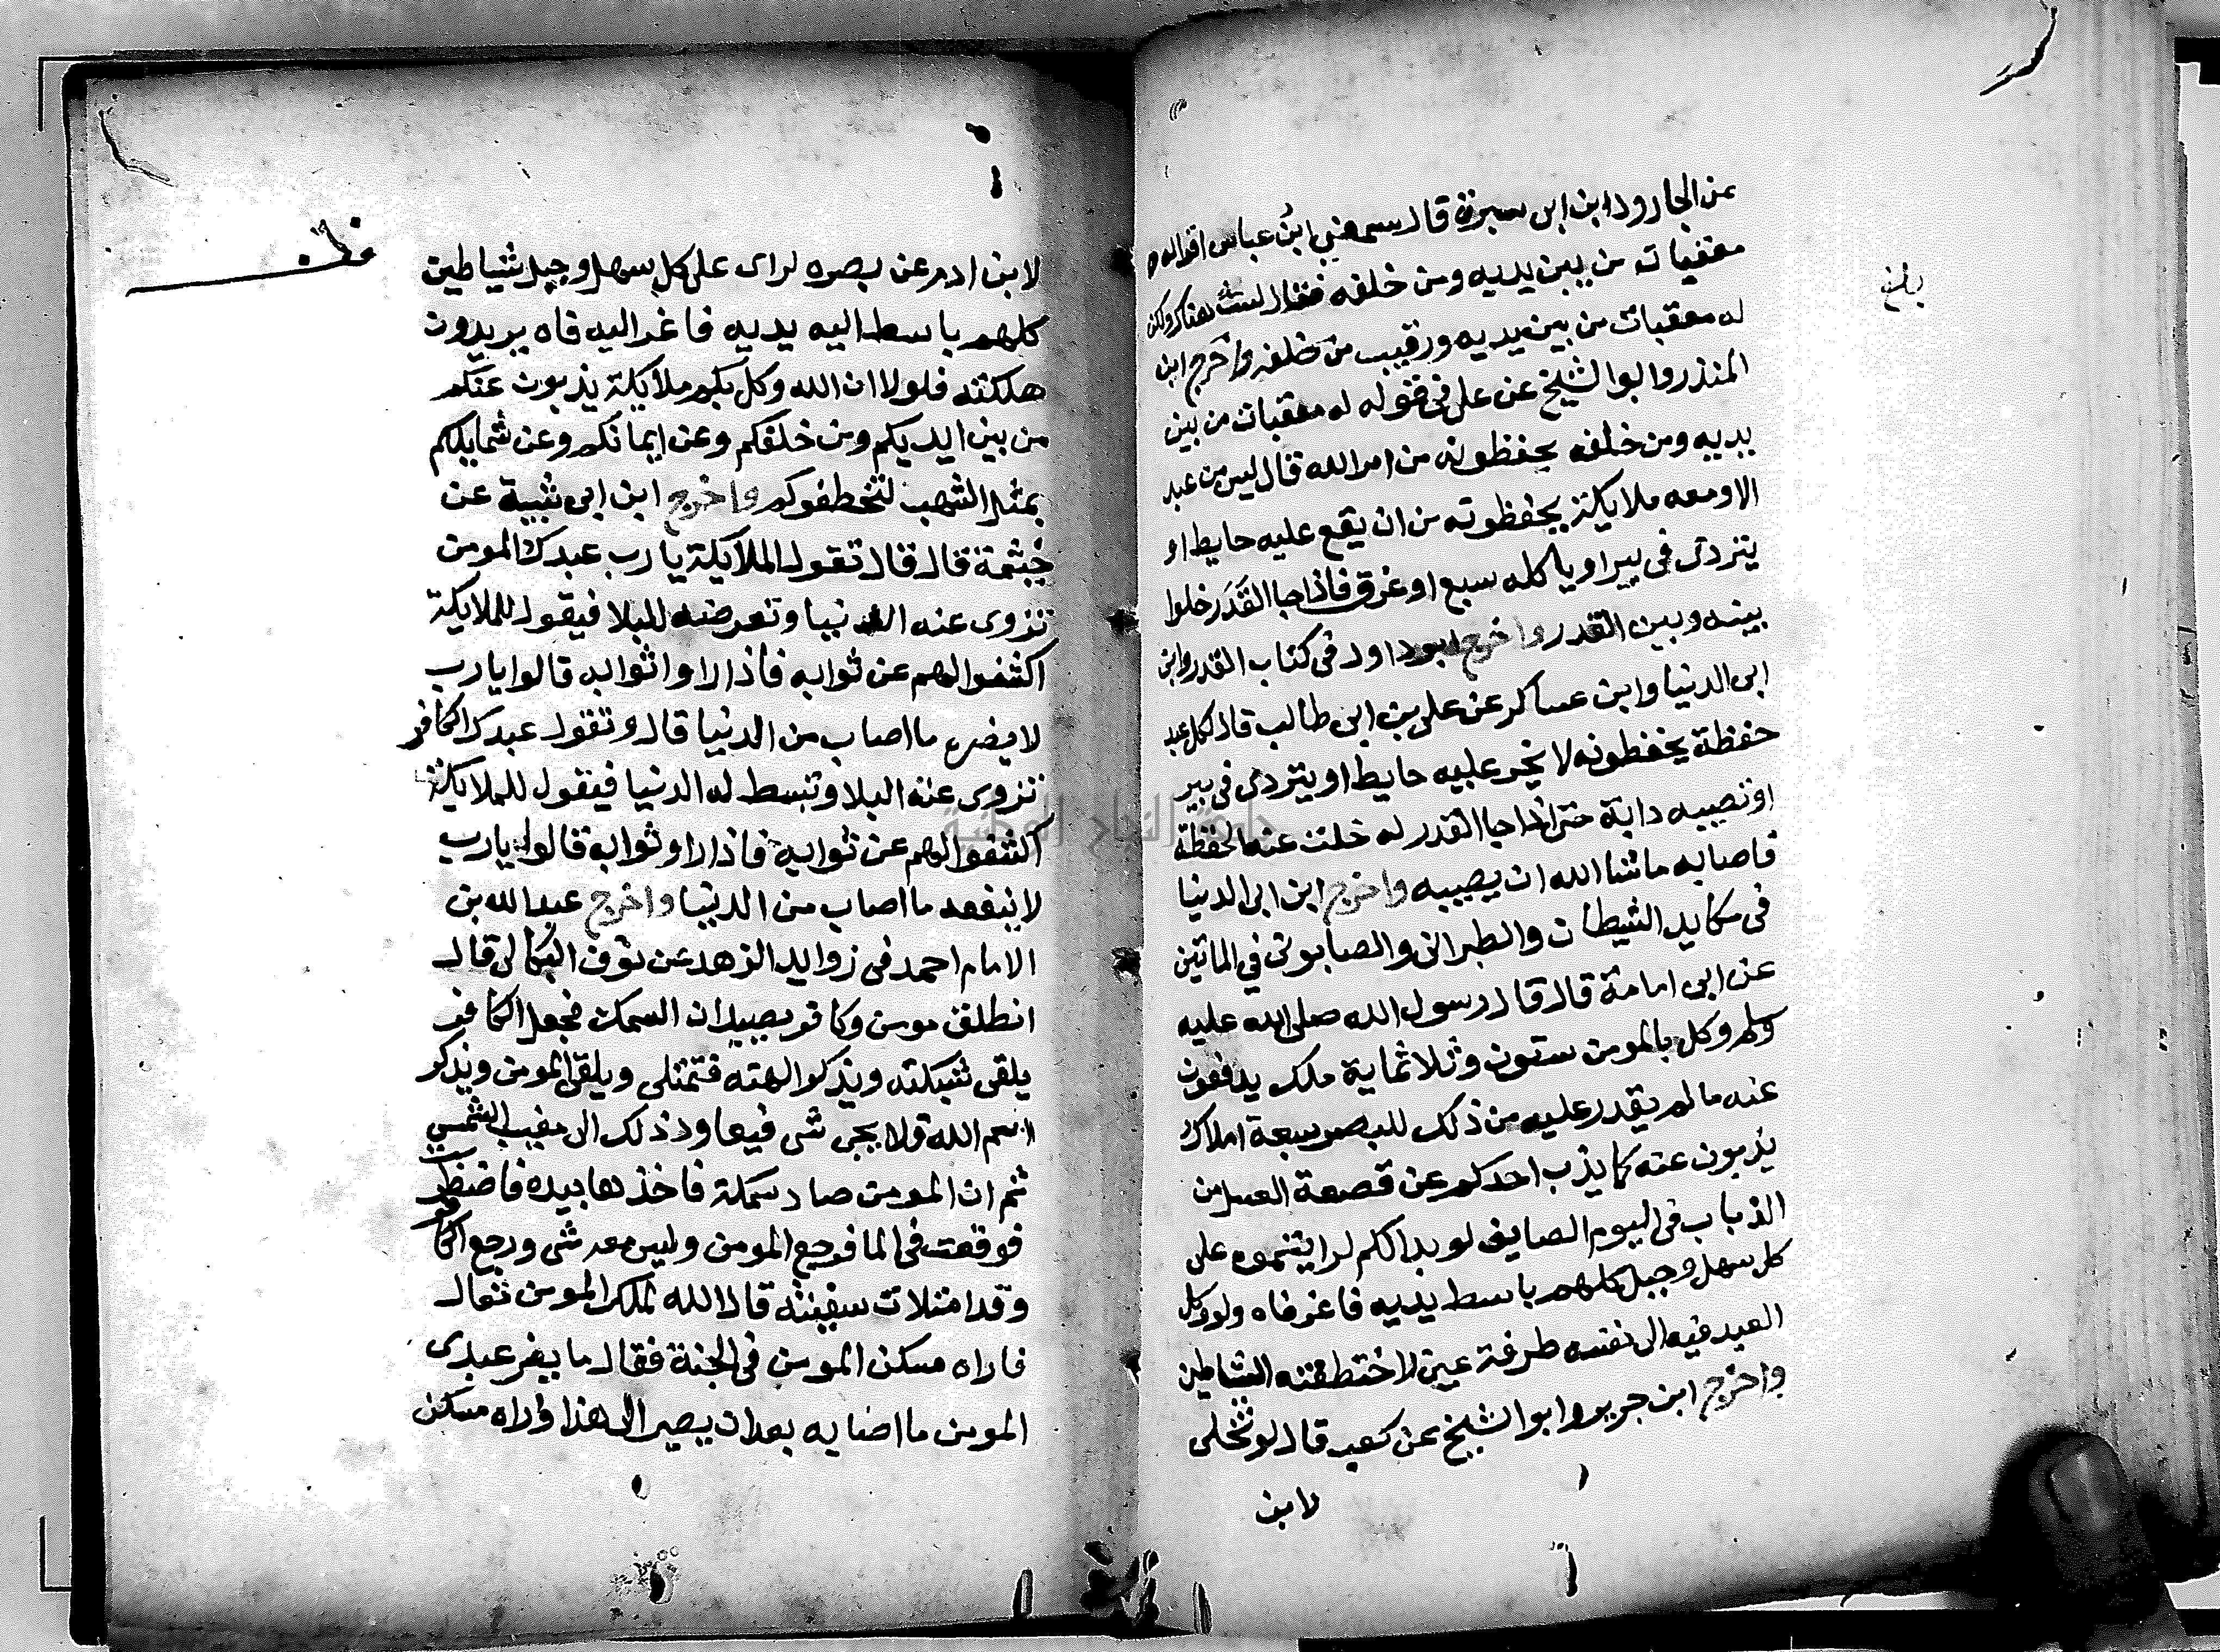 عن الجارود ابن ابي سبرة قال سمعني ابن عباس اقرا له
معقبات من بين يديه ومن خلفه فقال ليست هناك ولكن
له معقبات من بين يديه ورقيب من خلفه واخرج ابن
المنذر وابو الشيخ عن علي في قوله له معقبات من بين
يديه ومن خلفه يحفظونه من امر الله قال ليس من عبد
الا ومعه ملايكة يحفظونه من ان يقع عليه حايط او
يتردى في بير او ياكله سبع او غرق فاذا جا القدر خلوا
بينه وبين القدر واخرج ابو داود في كتاب القدر وابن
ابي الدنيا وابن عساكر عن علي بن ابي طالب قال لكل عبد
حفظة يحفظونه لا يخر عليه حايط او يتردى في بير
او تصيبه دابة حتى اذا جا القدر له خلت عنه الحفظة
فاصابه ما شا الله ان يصيبه واخرج ابن ابي الدنيا
في مكايد الشيطان والطبراني والصابوني في الماتين
عن ابي امامة قال قال رسول الله صلى الله عليه
ولم وكل بالمومن ستون وثلاثماية ملك يدفعون
عنه ما لم يقدر عليه من ذلك للبصر سبعة املاك
يذبون عنه كما يذب احدكم عن قصعة العسل من
الذباب في اليوم الصايف لو بدا لكم لرايتموه على
كل سهل وجبل كلهم باسط يديه فاغر فاه ولو وكل
العبد فيه الى نفسه طرفة عين لاختطفته الشياطين
واخرج ابن جرير وابو الشيخ عن كعب قال لو تخلى
لابن
بلغ
لابن ادم عن بصره لراى على كل سهل وجبل شياطين
كلهم باسط اليه يديه فاغر اليه فاه يريدون
هلكته فلولا ان الله وكل بكم ملايكة يذبون عنكم
من بين ايديكم ومن خلفكم وعن ايمانكم وعن شمايلكم
بمثل الشهب لتخطفوكم واخرج ابن ابي شيبة عن
خيثمة قال قال تقول الملايكة يا رب عبدك المومن
تزوي عنه الدنيا وتعرضه للبلا فيقول للملايكة
اكشفوا لهم عن ثوابه فاذا راوا ثوابه قالوا يا رب
لا يضره ما اصاب من الدنيا قال وتقول عبدك الكافر
تزوي عنه البلا وتبسط له الدنيا فيقول للملايكة
اكشفوا لهم عن ثوابه فاذا راو ثوابه قالوا يا رب
لا ينفعه ما اصاب من الدنيا واخرج عبد الله بن
الامام احمد في زوايد الزهد عن نوف البكالي قال
انطلق مومن وكافر يصيدان السمك فجعل الكافر
يلقي شبكته ويذكر الهته فتمتلي ويلقي المومن ويذكر
اسم الله فلا يجي شي فيعاود ذلك الى مغيب الشمس
ثم ان المومن صاد سمكة فاخذها بيده فاضطربت
فوقعت في الما فرجع المومن وليس معه شي ورجع الكافر
وقد امتلات سفينته قال الله لملك المومن تعال
فاراه مسكن المومن في الجنة فقال ما يضر عبدي
المومن ما اصابه بعد ان يصير الى هذا واراه مسكن
جامعة النجاح الوطنية